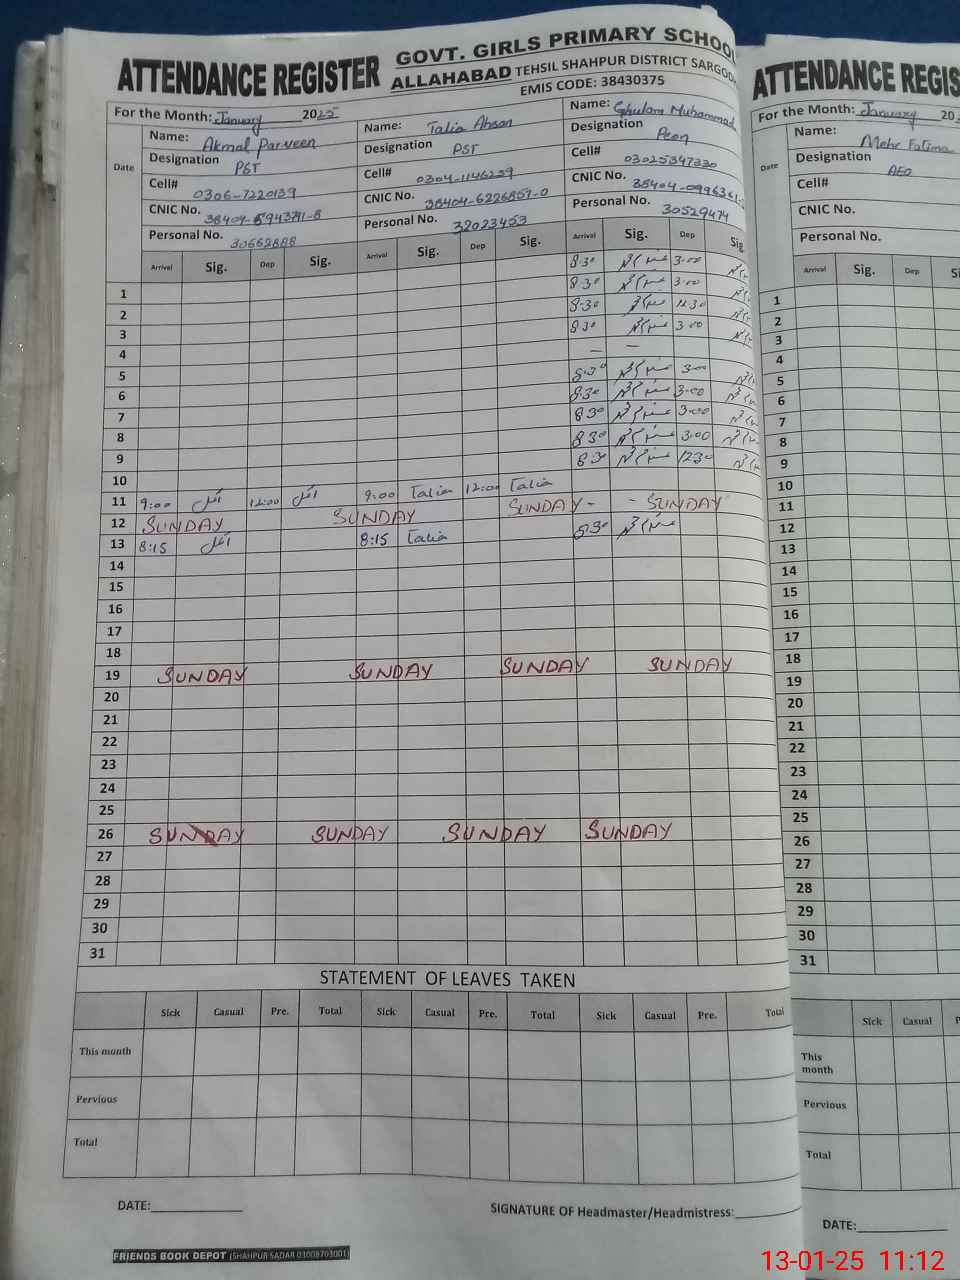 ATTENDANCE REGISTER GOVT. GIRLS PRIMARY SCHOOL
ALLAHABAD TEHSIL SHAHPUR DISTRICT SARGOD
EMIS CODE: 38430375
For the Month: January 2025
Date
Name: Akmal Parveen Name: Talia Ahsan Name: Ghulam Muhammad
Designation PST Designation PST Designation Peon
Cell# 0306-7220139 Cell# 0304-1146259 Cell# 03025347330
CNIC No. CNIC No. 38404-6226859-0 CNIC No.
Personal No. 30662888 Personal No. 32023453 Personal No. 30529474
Arrival Sig. Dep Sig. Arrival Sig. Dep Sig. Arrival Sig. Dep Sig
8:30 3:00
1 8:30 3:00
2 8:30 12:30
3 8:30 3:00
4 — —
5 8:30 3:00
6 8:30 3:00
7 8:30 3:00
8 8:30 3:00
9 8:30 12:30
10
11 9:00 12:00 9:00 Talia 12:00 Talia
12 SUNDAY SUNDAY SUNDAY - - SUNDAY
13 8:15 8:15 Talia 8:30
14
15
16
17
18
19 SUNDAY SUNDAY SUNDAY SUNDAY
20
21
22
23
24
25
26 SUNDAY SUNDAY SUNDAY SUNDAY
27
28
29
30
31
STATEMENT OF LEAVES TAKEN
Sick Casual Pre. Total Sick Casual Pre. Total Sick Casual Pre. Total
This month
Pervious
Total
DATE: SIGNATURE OF Headmaster/Headmistress:
FRIENDS BOOK DEPOT (SHAHPUR SADAR 03008703001)
ATTENDANCE REGIS
For the Month: January 20
Date
Name: Mehr Fatima
Designation AEO
Cell#
CNIC No.
Personal No.
Arrival Sig. Dep
1
2
3
4
5
6
7
8
9
10
11
12
13
14
15
16
17
18
19
20
21
22
23
24
25
26
27
28
29
30
31
Sick Casual
This
month
Pervious
Total
DATE:
13-01-25 11:12